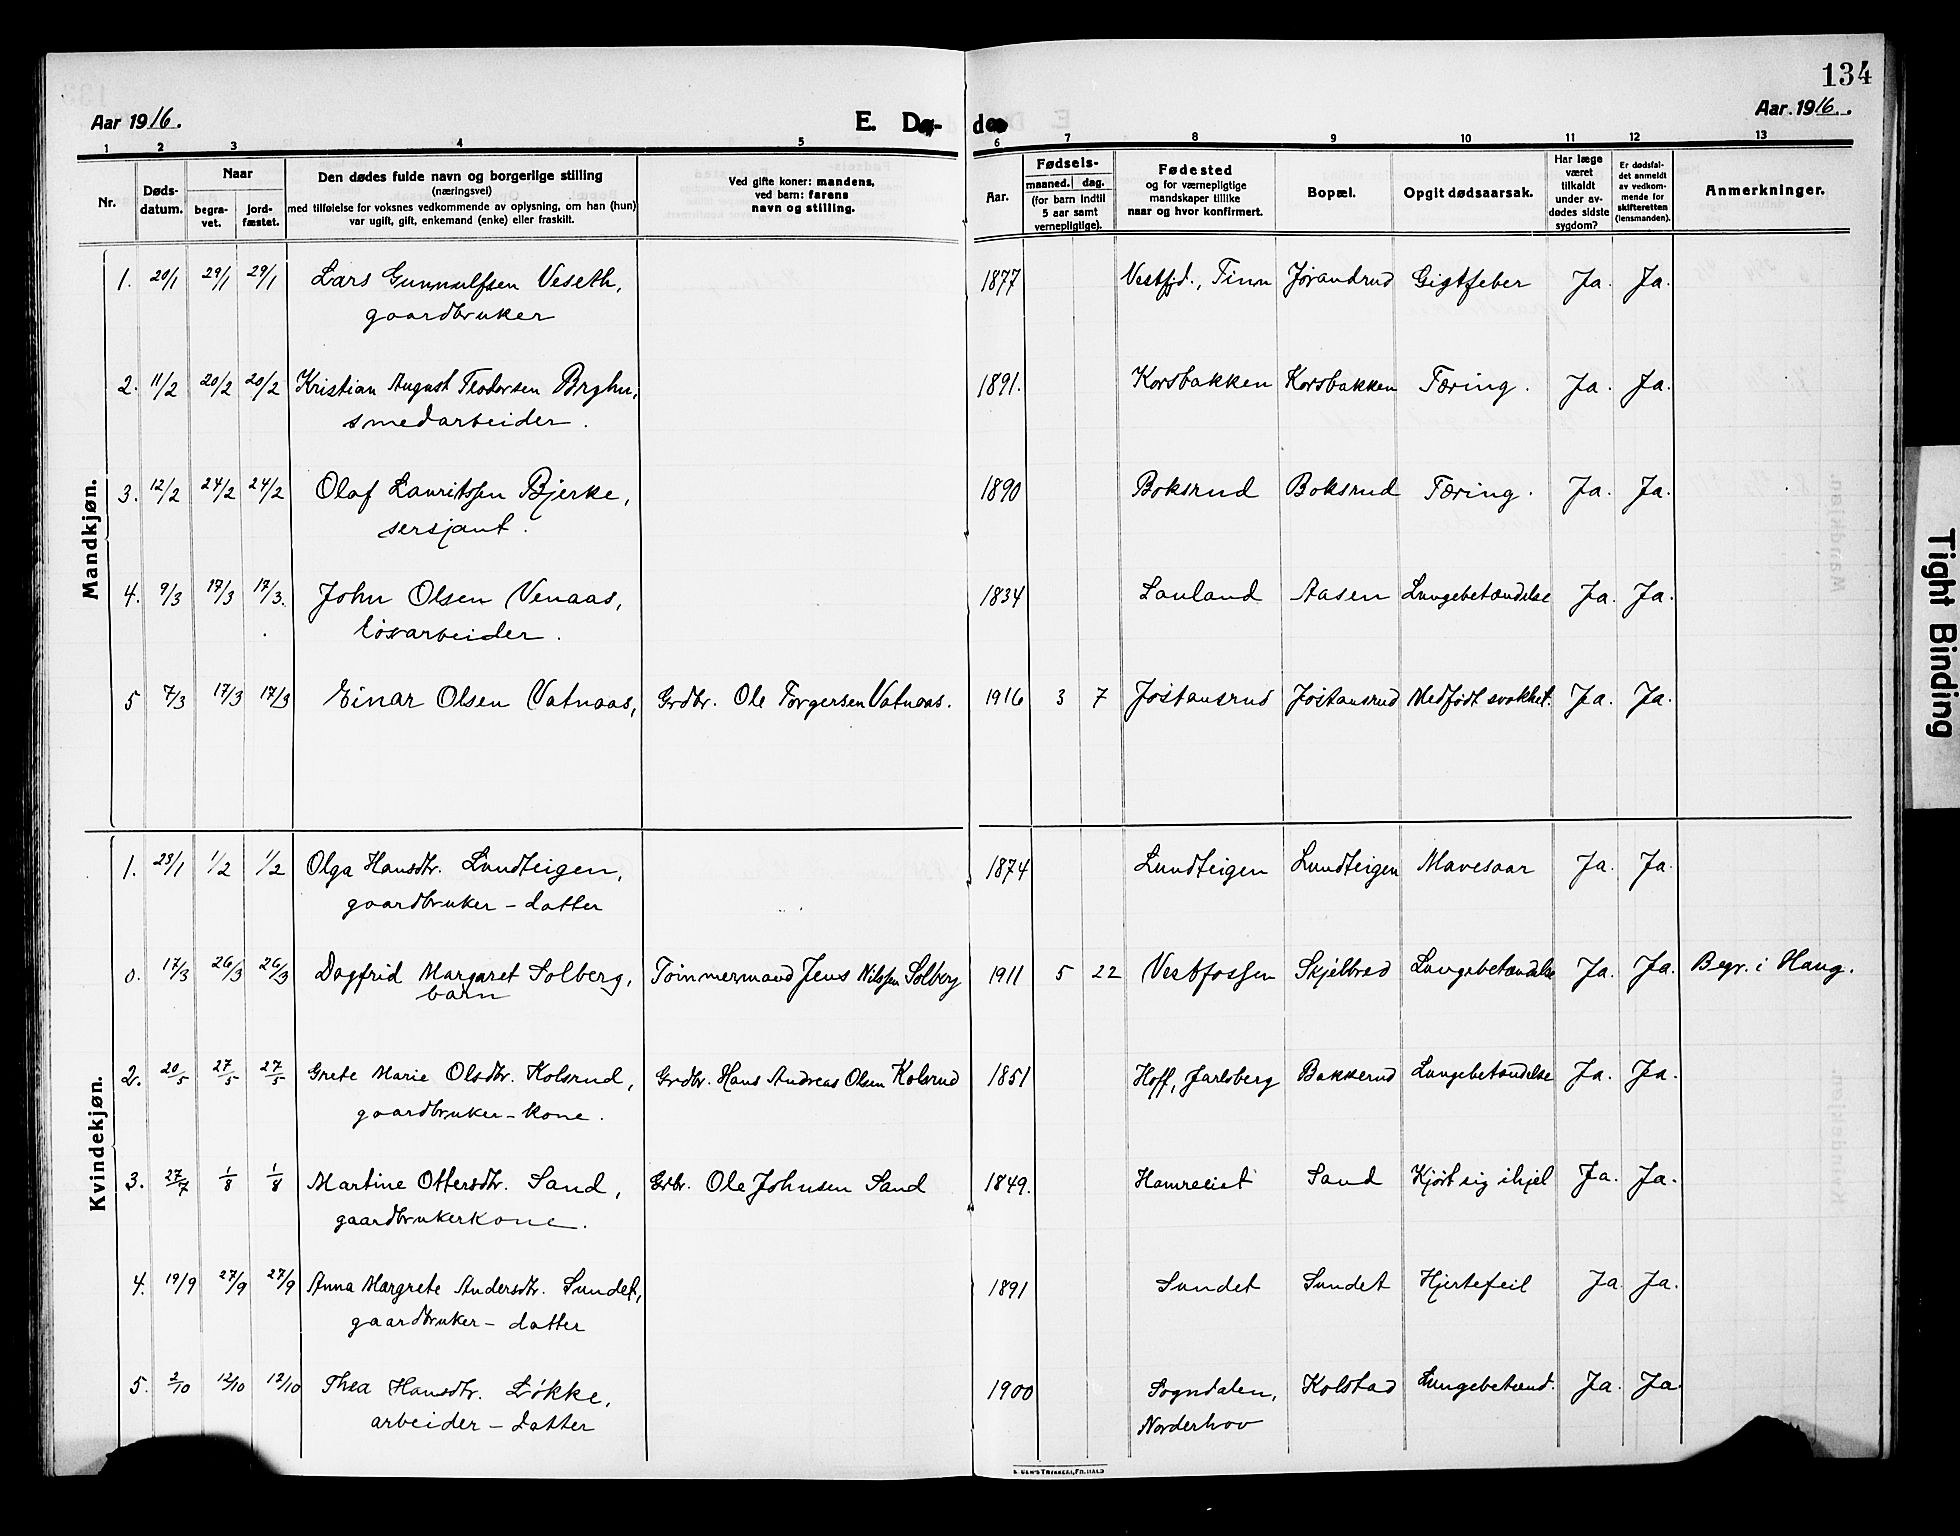 134
Aar 1916.
E. Dø-
døe
Aar. 1916.
1 2 3 4 5 6 7 8 9 10 11 12 13
Nr.
Døds-
datum.
Naar
begra-
vet.
jord-
fæstet.
Den dødes fulde navn og borgerlige stilling
(næringsvei)
med tilføielse for voksnes vedkommende av oplysning, om han (hun)
var ugift, gift, enkemand (enke) eller fraskilt.
Ved gifte koner: mandens,
ved barn: farens
navn og stilling.
Aar.
Fødsels-
maaned. dag.
(for barn indtil
5 aar samt
vernepligtige).
Fødested
og for værnepligtige
mandskaper tillike
naar og hvor konfirmert.
Bopæl.
Opgit dødsaarsak.
Har læge
været
tilkaldt
under av-
dødes sidste
sygdom?
Er dødsfal-
det anmeldt
av vedkom-
mende for
skifteretten
(lensmanden).
Anmerkninger.
Mandkjøn.
1. 20/1 29/1 29/1 Lars Gunnulfsen Veseth, 1877 Vestfjd., Tinn Jørandrud Gigtfeber Ja. Ja.
gaardbruker
2. 11/2 20/2 20/2 Kristian August Teodorsen 1891. Korsbakken Korsbakken Tæring. Ja. Ja.
smedarbeider.
3. 12/2 24/2 24/2 Olaf Lauritssen Bjerke, 1890 Boksrud Boksrud Tæring. Ja. Ja.
sersjant.
4. 9/3 17/3 17/3. John Olsen Venaas, 1834 Lauland Aasen Lungebetændelse Ja. Ja.
løsarbeider.
5 7/3 17/3 17/3 Einar Olsen Vatnaas, Grdbr. Ole Torgersen Vatnaas. 1916 3 7 Jøstansrud Jøstansrud Medfødt svakhet. Ja. Ja.
Kvindekjøn.
1. 23/1 1/2 1/2 Olga Hansdtr. Lundteigen, 1874 Lundteigen Lundteigen Mavesaar Ja. Ja.
gaardbruker - datter
0. 17/3 26/3 26/3 Dagfrid Margaret Solberg, Tømmermand Jens Nilssen Solberg 1911 5 22 Vestfossen Skjelbred Lungebetændelse Ja. Ja. Begr. i Haug.
barn
2. 20/5 27/5 27/5 Grete Marie Olsdtr. Kolsrud, Grdbr. Hans Andreas Olsen Kolsrud 1851 Hoff, Jarlsberg Bakkerud Lungebetændelse Ja. Ja.
gaardbruker - kone.
3. 27/7 1/8 1/8 Martine Ottersdtr. Sand, Grbr. Ole Johnsen Sand 1849. Hamreeiet Sand Kjørt sig ihjel Ja. Ja.
gaardbrukerkone.
4. 19/9 27/9 27/9 Anna Margrete Andersdtr. Sundet, 1891 Sundet Sundet Hjertefeil Ja. Ja.
gaardbruker - datter
5. 2/10 12/10 12/10 Thea Hansdtr. Løkke, 1900 Sogndalen, Kolstad Lungebetænd. Ja. Ja
arbeider - datter Norderhov
Tight Binding